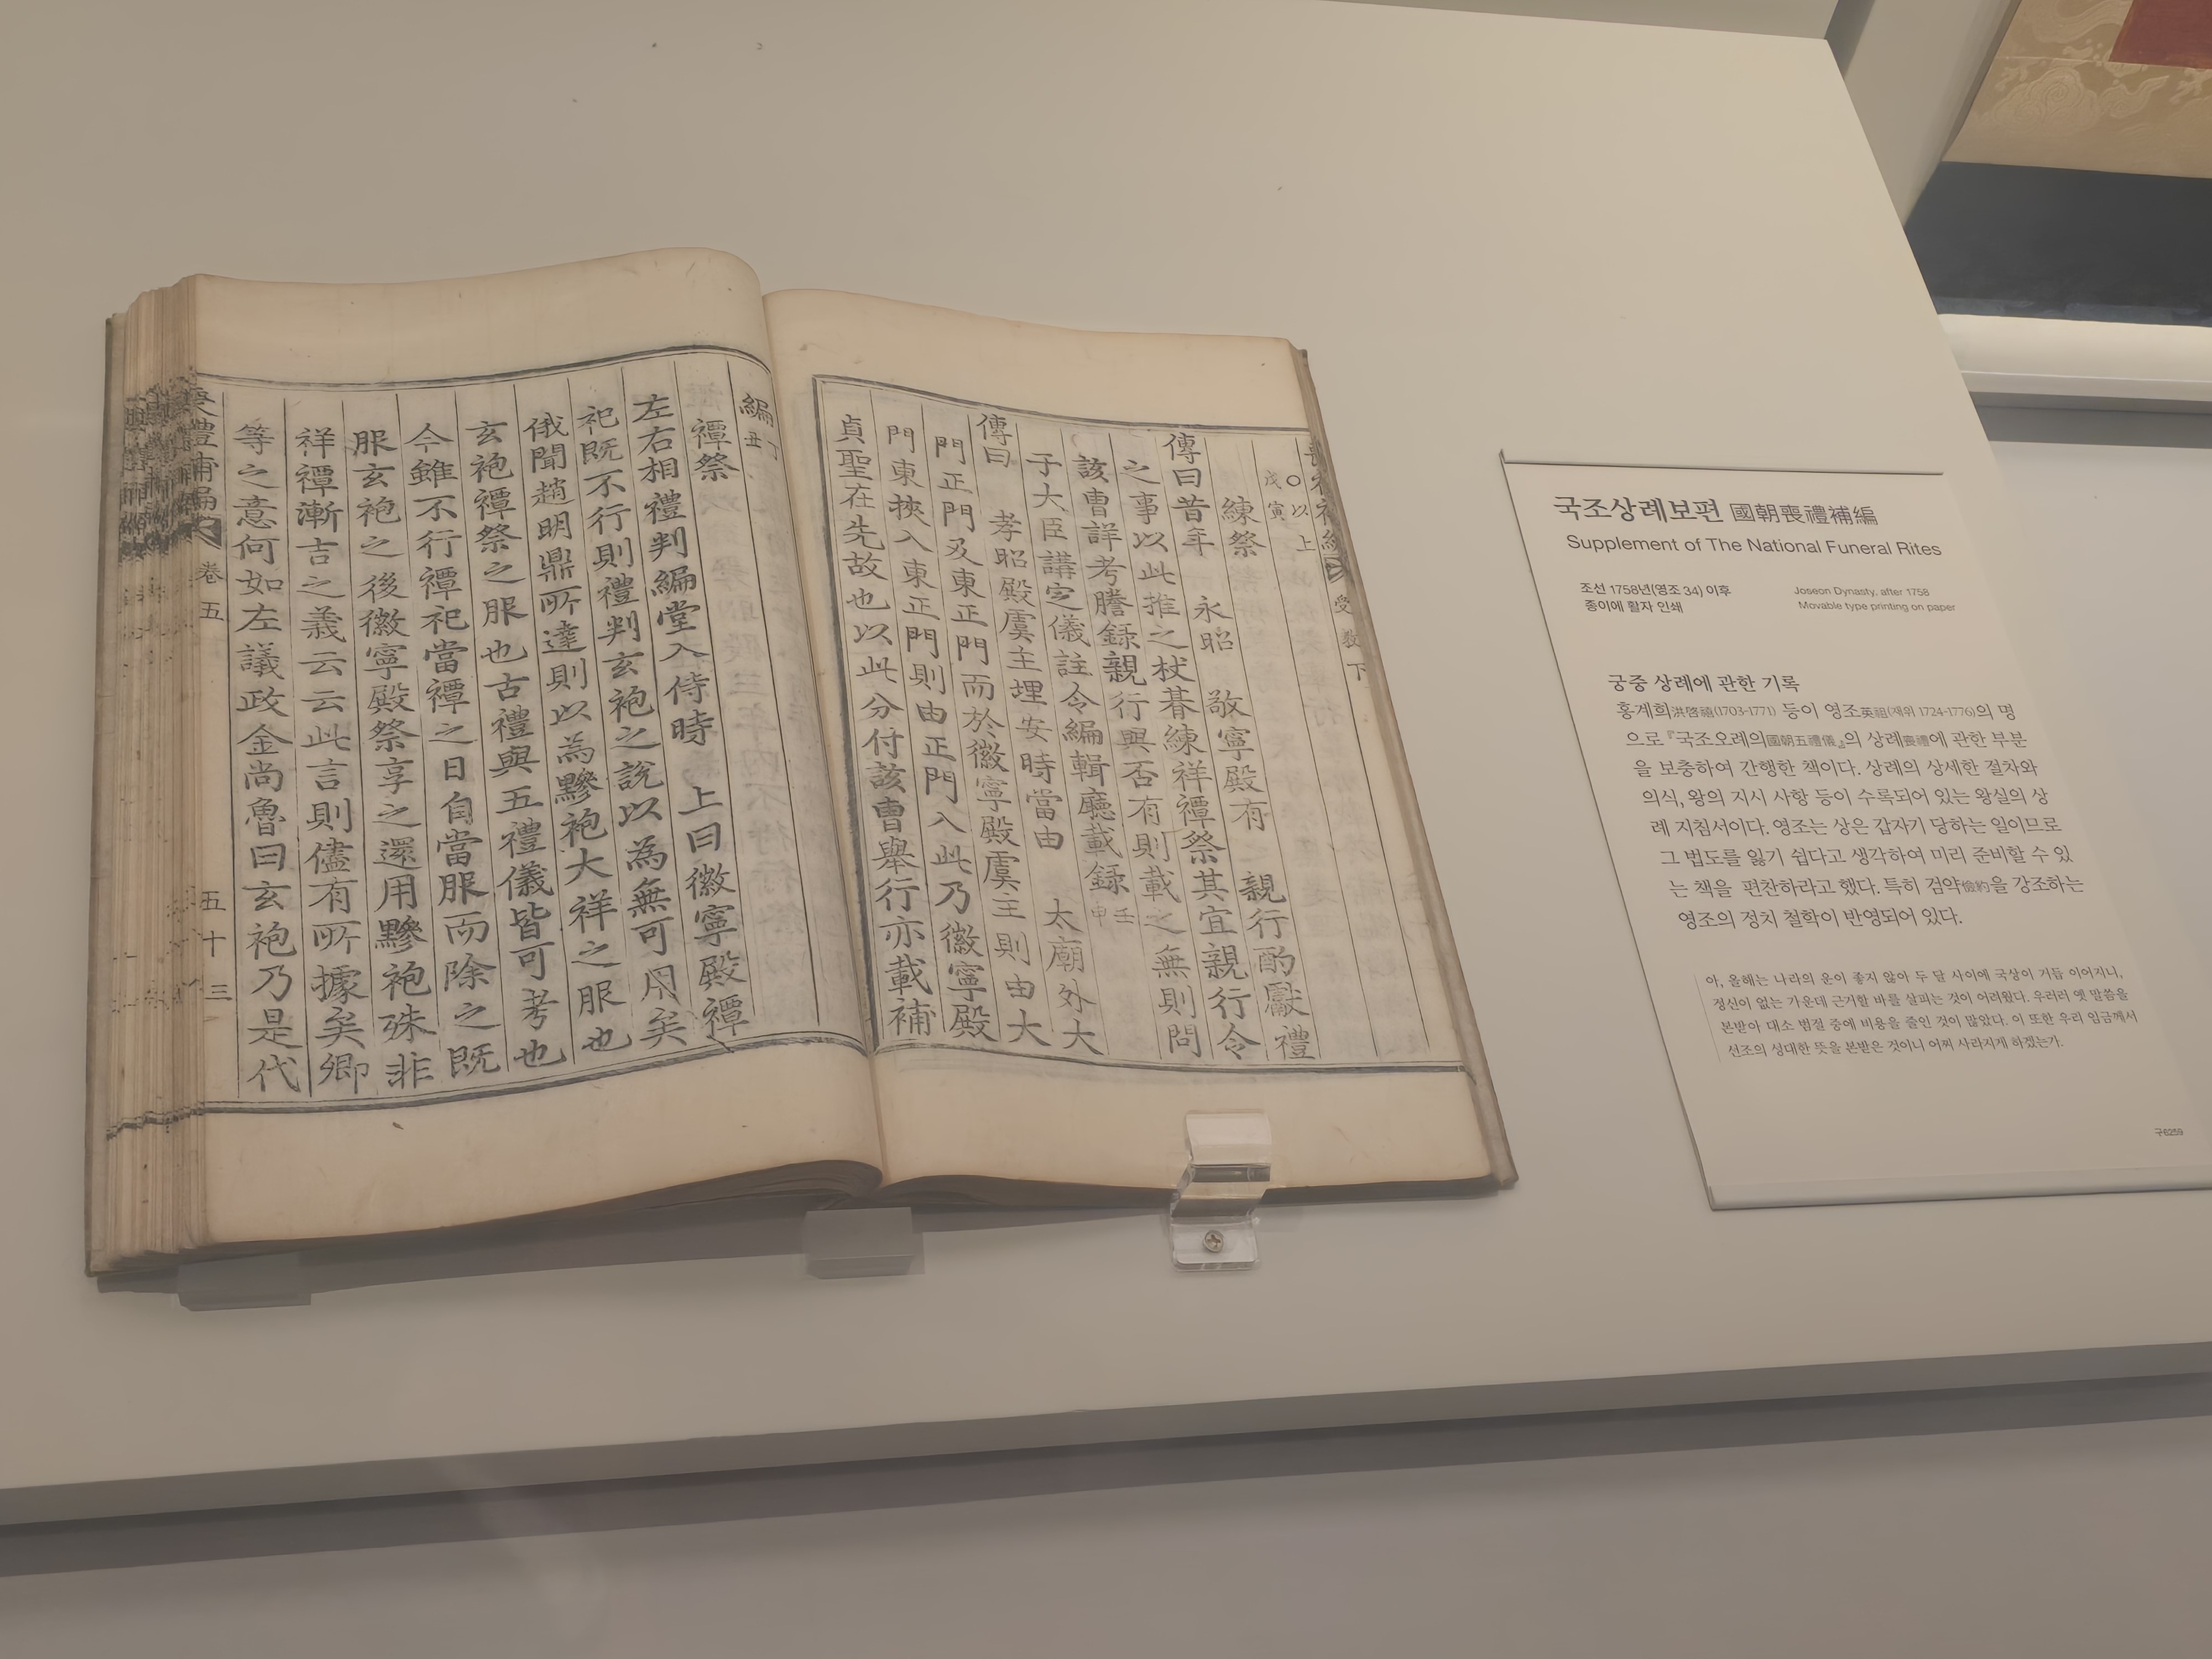 受教下
○以上戊寅
練祭
傳曰昔年 永昭 敬寧殿有 親行酌獻禮
之事以此推之杖朞練祥禫祭其宜親行令
該曹詳考謄錄親行與否有則載之無則問
于大臣講定儀註令編輯廳載錄壬申
傳曰 孝昭殿虞主埋安時當由 太廟外大
門正門及東正門而於徽寧殿虞主則由大
門東挾入東正門則由正門入此乃徽寧殿
貞聖在先故也以此分付該曹舉行亦載補
編丁丑
禫祭
左右相禮判編堂入侍時 上曰徽寧殿禫
祀既不行則禮判玄袍之說以為無可用矣
俄聞趙明鼎所達則以為黲袍大祥之服也
玄袍禫祭之服也古禮與五禮儀皆可考也
今雖不行禫祀當禫之日自當服而除之既
服玄袍之後徽寧殿祭享之還用黲袍殊非
祥禫漸吉之義云云此言則儘有所據矣卿
等之意何如左議政金尚魯曰玄袍乃是代
喪禮補編 卷五 五十三
국조상례보편 國朝喪禮補編
Supplement of The National Funeral Rites
조선 1758년(영조 34) 이후
종이에 활자 인쇄
Joseon Dynasty, after 1758
Movable type printing on paper
궁중 상례에 관한 기록
홍계희洪啓禧(1703-1771) 등이 영조英祖(재위 1724-1776)의 명
으로 『국조오례의國朝五禮儀』의 상례喪禮에 관한 부분
을 보충하여 간행한 책이다. 상례의 상세한 절차와
의식, 왕의 지시 사항 등이 수록되어 있는 왕실의 상
례 지침서이다. 영조는 상은 갑자기 당하는 일이므로
그 법도를 잃기 쉽다고 생각하여 미리 준비할 수 있
는 책을 편찬하라고 했다. 특히 검약儉約을 강조하는
영조의 정치 철학이 반영되어 있다.
아, 올해는 나라의 운이 좋지 않아 두 달 사이에 국상이 거듭 이어지니,
정신이 없는 가운데 근거할 바를 살피는 것이 어려웠다. 우러러 옛 말씀을
본받아 대소 범절 중에 비용을 줄인 것이 많았다. 이 또한 우리 임금께서
선조의 성대한 뜻을 본받은 것이니 어찌 사라지게 하겠는가.
구6259